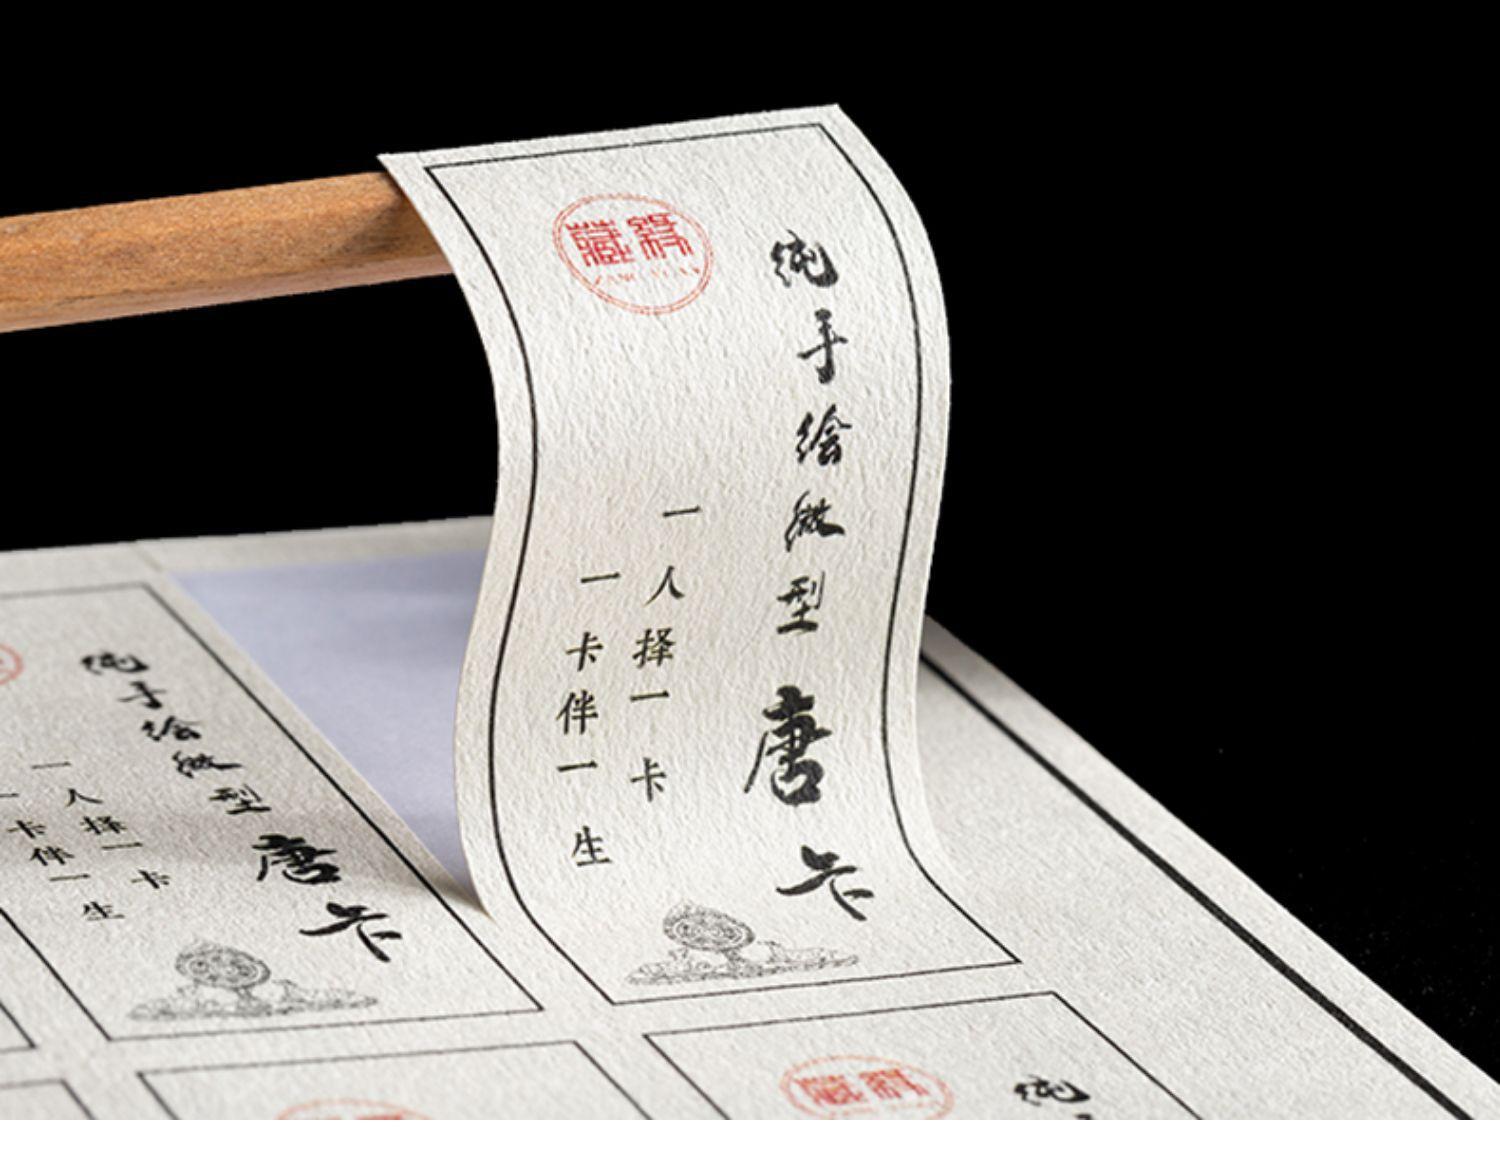 纯手绘微型唐卡
一人择一卡
一卡伴一生
藏缘
纯手绘微型唐卡
一人择一卡
一卡伴一生
藏缘
纯